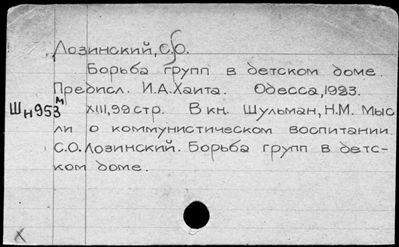 Лозинский, С.О.
Борьба групп в детском доме.
Предисл. И.А. Хаита. Одесса, 1923.
Шн953м XIII, 99 стр. В кн. Шульман, Н.М. Мыс
ли о коммунистическом воспитании.
С.О. Лозинский. Борьба групп в детс-
ком доме.
X